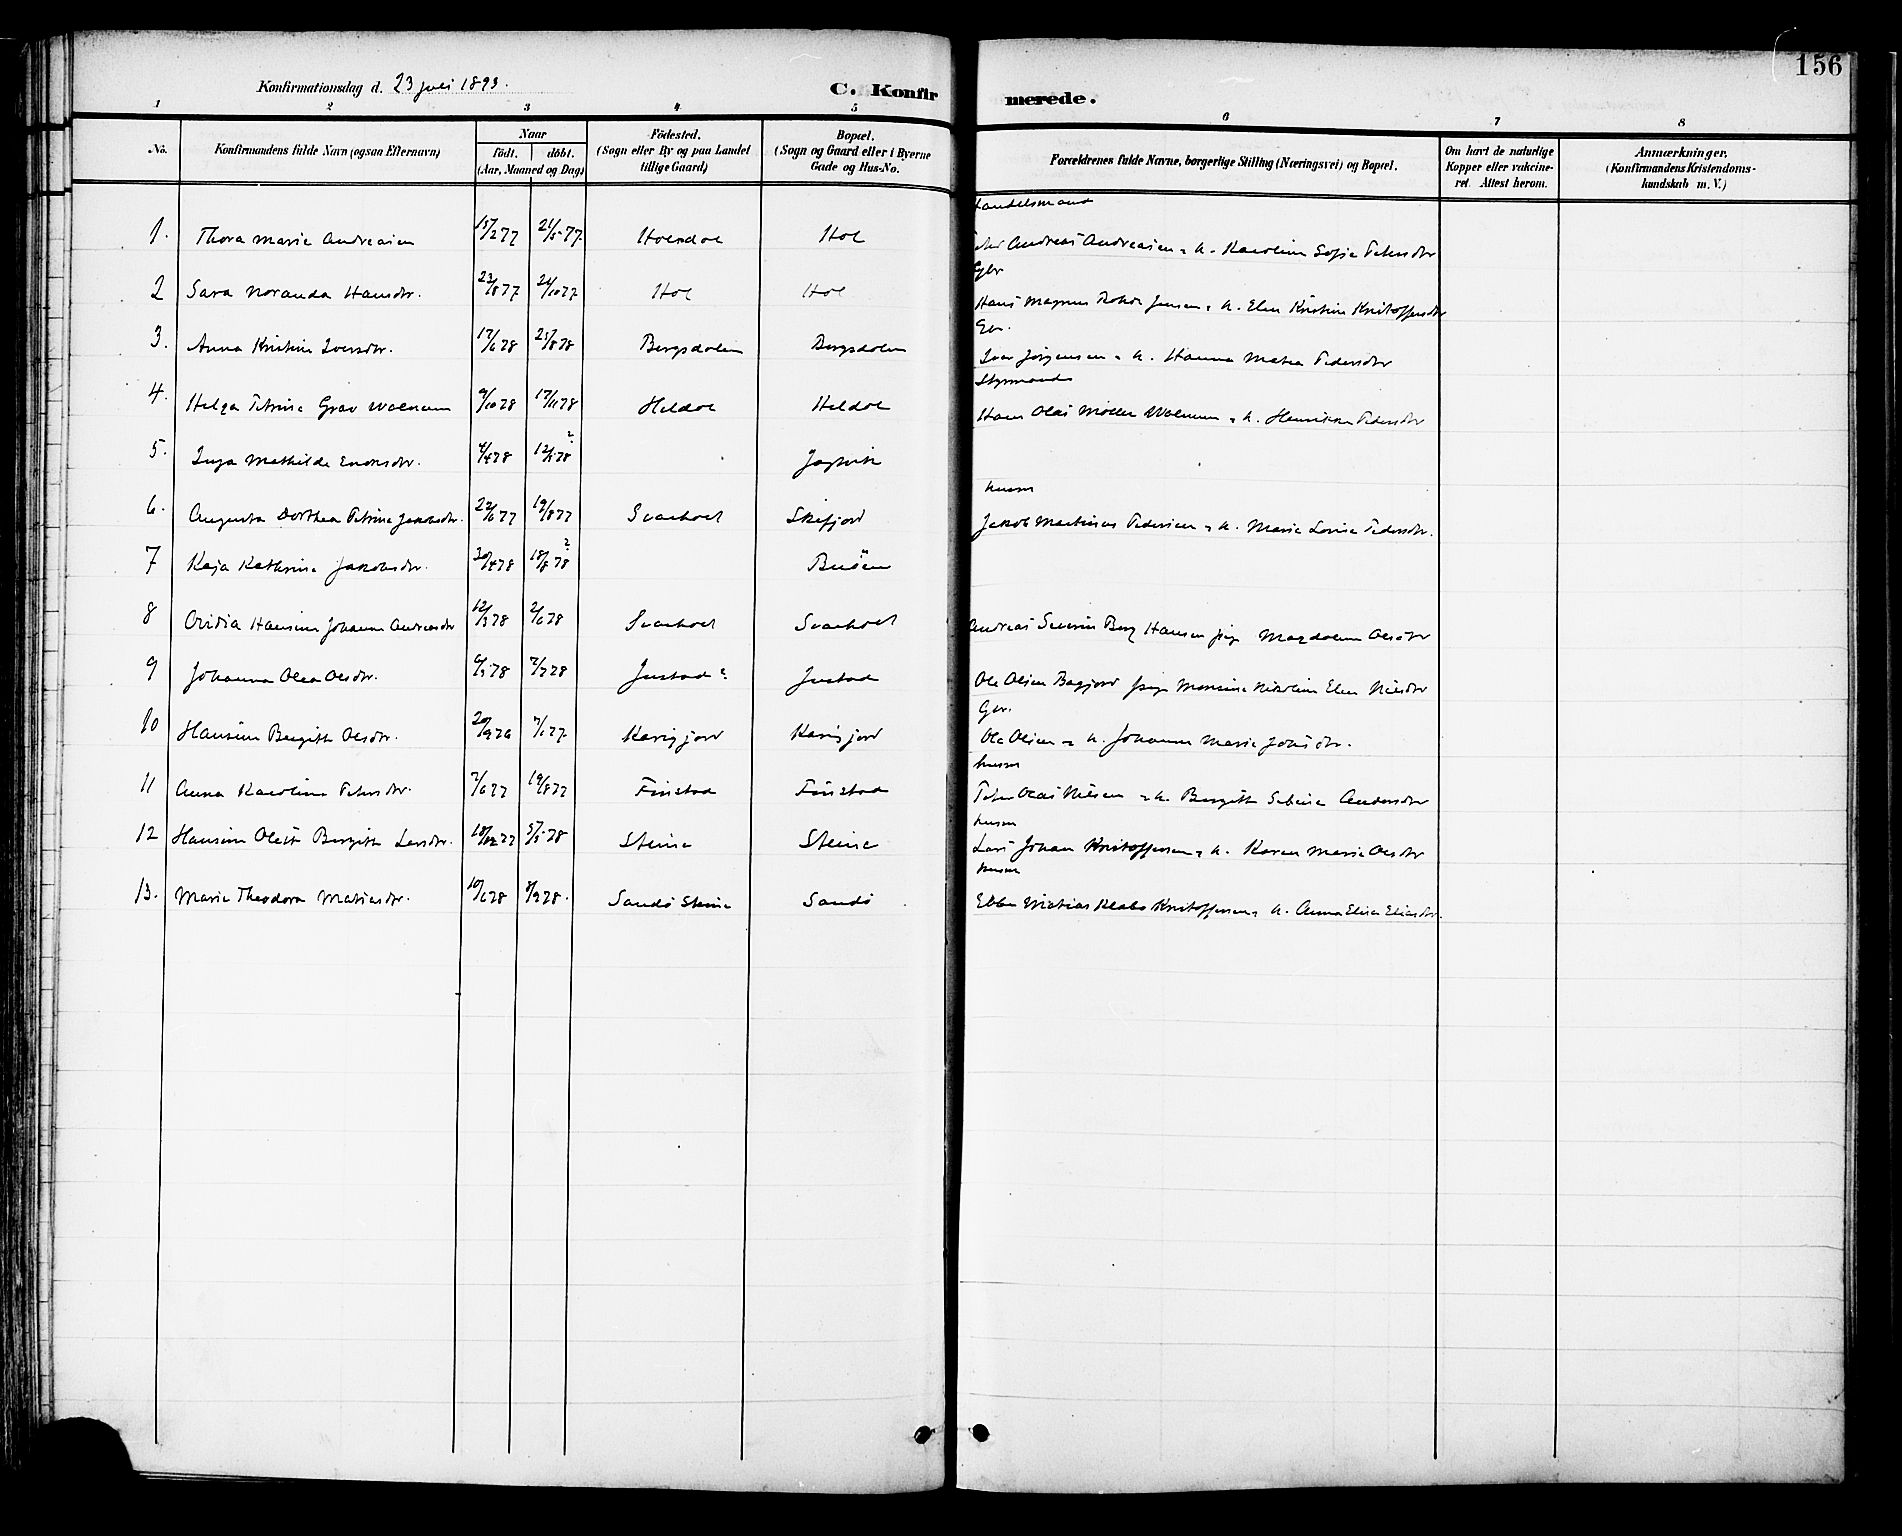 156
Konfirmationsdag d. 23 juli 1893.
C. Konfir
merede.
1 2 3 4 5 6 7 8
No.
Konfirmandens fulde Navn (ogsaa Efternavn)
Naar
födt. döbt.
(Aar, Maaned og Dag)
Födested.
(Sogn eller By og paa Landet
tillige Gaard)
Bopæl.
(Sogn og Gaard eller i Byerne
Gade og Hus-No.
Forældrenes fulde Navne, borgerlige Stilling (Næringsvei) og Bopæl.
Om havt de naturlige
Kopper eller vakcine-
ret. Attest herom.
Anmærkninger.
(Konfirmandens Kristendoms-
kundskab m. V.)
Handelsmand
1. Thora Marie Andreasen 15/2 77 21/5 77. Holsdal Hol Andreas Andreasen & h. Karoline Sofie Petersdtr
Gbr
2 Sara Noranda Hansdtr. 23/8 77 21/10 77 Hol Hol Hans Magnus Jensen & h. Elen Kristine Kristoffersdtr
Gbr.
3. Anna Kristine Iversdtr. 17/6 78 25/8 78 Bergsdalen Bergsdalen Iver Jörgensen & h. Hanna Matea Pedersdtr
Styrmand
4. Helga Petrine Grav Wolmann 9/10 78 17/11 78 Heldol Heldol Hans Olai Möller & h. Henrikke Pedersdtr
5. Inga Mathilde Enoksdtr. 4/4 78 12/5 78 ?
husm
6. Augusta Dorthea Petrine Jakobsdtr. 22/6 77 19/8 77 Svarholt Skifjord Jakob Martinus Pedersen & h. Marie Lovise Pedersdtr.
7 Kaja Kathrine Jakobsdtr. 30/4 78 18/8 78 ? Buöen
8 Ovidia Hansine Johanna Andreasdtr 12/3 78 2/6 78 Svarholt Svarholt Andreas Severin Berg Hansen pige Magdalena Olsdtr
9 Johanna Olea Olsdtr. 6/5 78 7/7 78 Justad ? Justad Ole Olsen Bagfjord pige Monsine Nikoline Elen Nilsdtr
Gbr.
10 Hansine Bergitte Olsdtr. 20/9 76 7/1 77. Karigfjord Karigfjord Ole Olsen & h. Johanna Marie Johsdtr.
husm
11 Anna Karoline Petersdtr. 7/6 77 19/8 77 Finstad Finstad Peter Olai Nilsen & h. Bergitte Sebine Andersdtr
husm
12 Hansine Olett Bergitte Larsdtr. 18/12 77 5/5 78 Steine Steine Lars Johan Kristoffersen & h. Karen Marie Olsdtr
husm
13. Marie Theodora Matiasdtr. 10/6 78 8/9 78. Sandö Steine Sandö Matias Kristoffersen & h. Anna Elisa Eliasdtr.